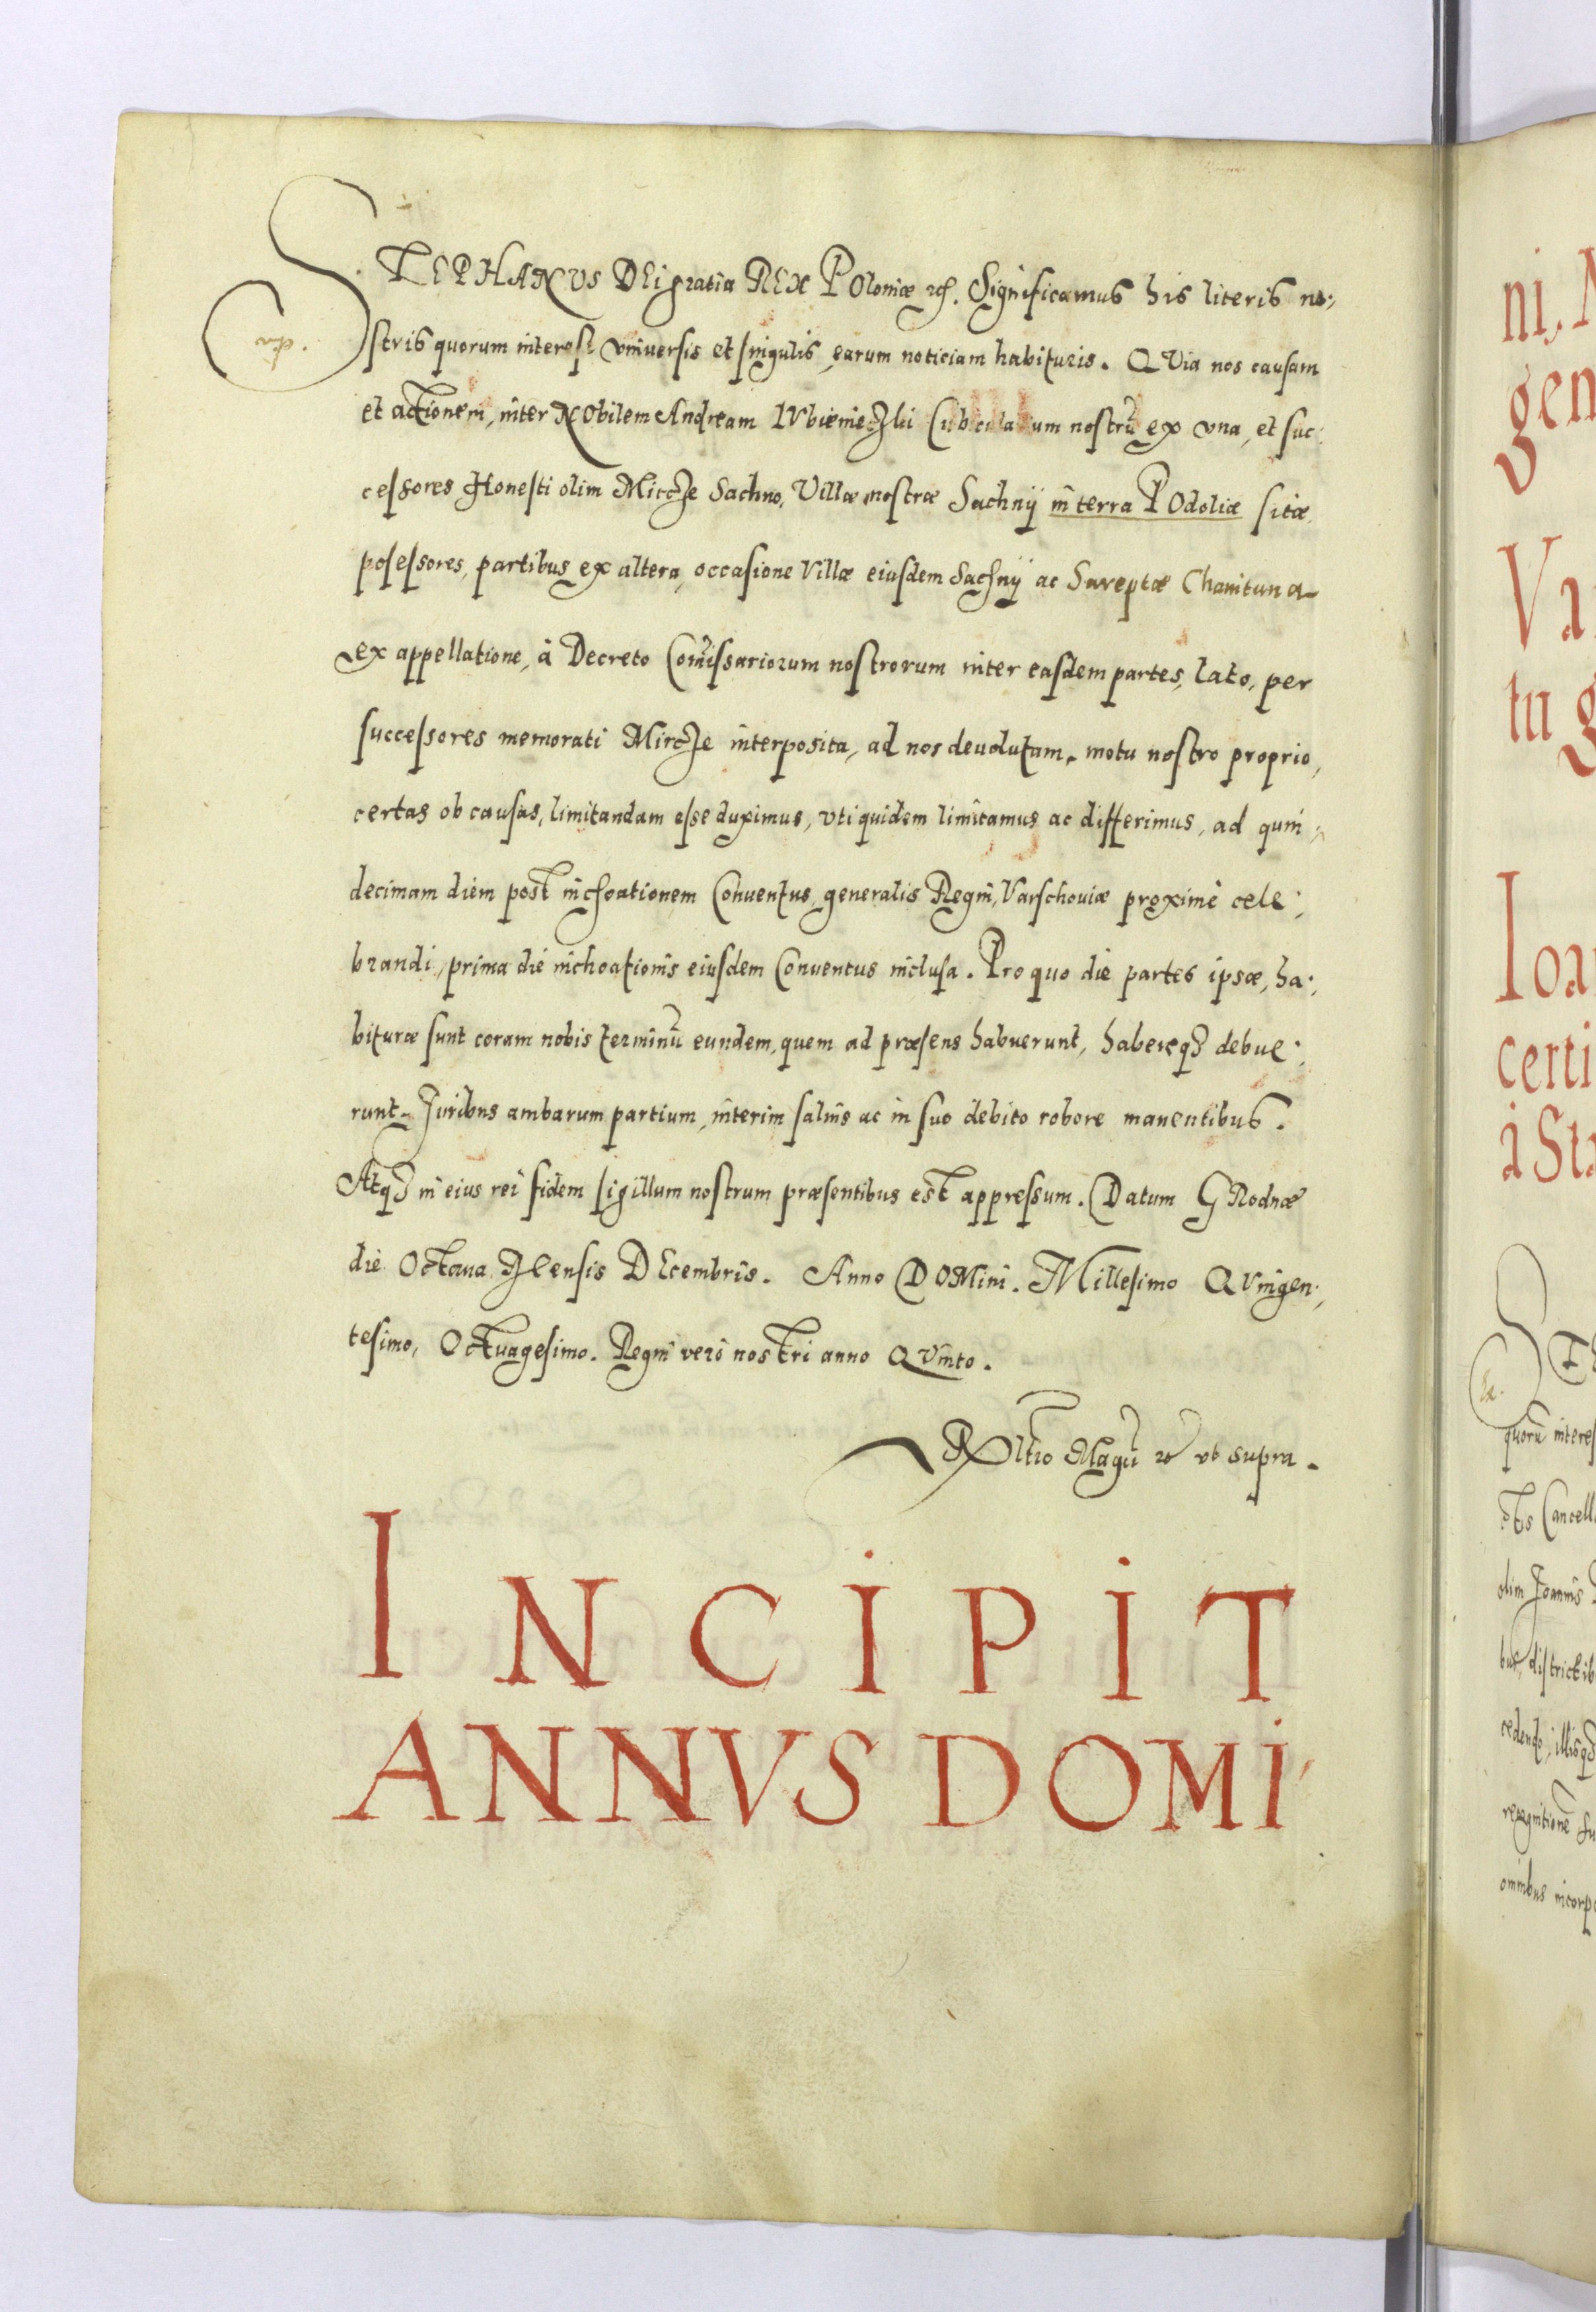 STEPHANVS DEi gratia REX POloniæ etc. Significamus his literis no:,
stris quorum interest vniuersis et singulis, earum noticiam habituris. QVia nos causam
et actionem, inter NObilem Andream Cubicularium nostrū ex vna, et suc:
cessores Honesti olim Mircze Sachno, Villæ nostræ Sachnÿ in terra POdoliæ sitæ
possessores, partibus ex altera, occasione Villæ eiusdem Sachnÿ ac Sareptæ Chanituna
ex appellatione, à Decreto Com̃issariorum nostrorum inter easdem partes, lato, per
successores memorati Mircze interposita, ad nos deuolutam, motu nostro proprio,
certas ob causas, limitandam esse duximus, vti quidem limitamus ac differimus, ad quin:,
decimam diem post inchoationem Conuentus generalis Regni, Varschouiæ proximè cele:,
brandi, prima die inchoationis eiusdem Conuentus inclusa. Pro quo die partes ipsæ, ha:,
bituræ sunt coram nobis terminū eundem, quem ad præsens habuerunt, habereqȝ debue:,
runt. Juribus ambarum partium, interim saluis ac in suo debito robore manentibus.
Atqȝ in eius rei fidem sigillum nostrum præsentibus est appressum. Datum GRodnæ
die Octaua Mensis DEcembris. Anno DOMini. Millesimo QVingen:,
tesimo, Octuagesimo. Regni verò nostri anno QVinto.
Rltio Magci etc vt supra.
INCIPIT
ANNVS DOMI
ni, M
gen
Va
tu g
Ioa
certi
à Sta
quorū interes
Cancell
olim Joannis
districtib
cedendo, illisqȝ
omnibus incorp